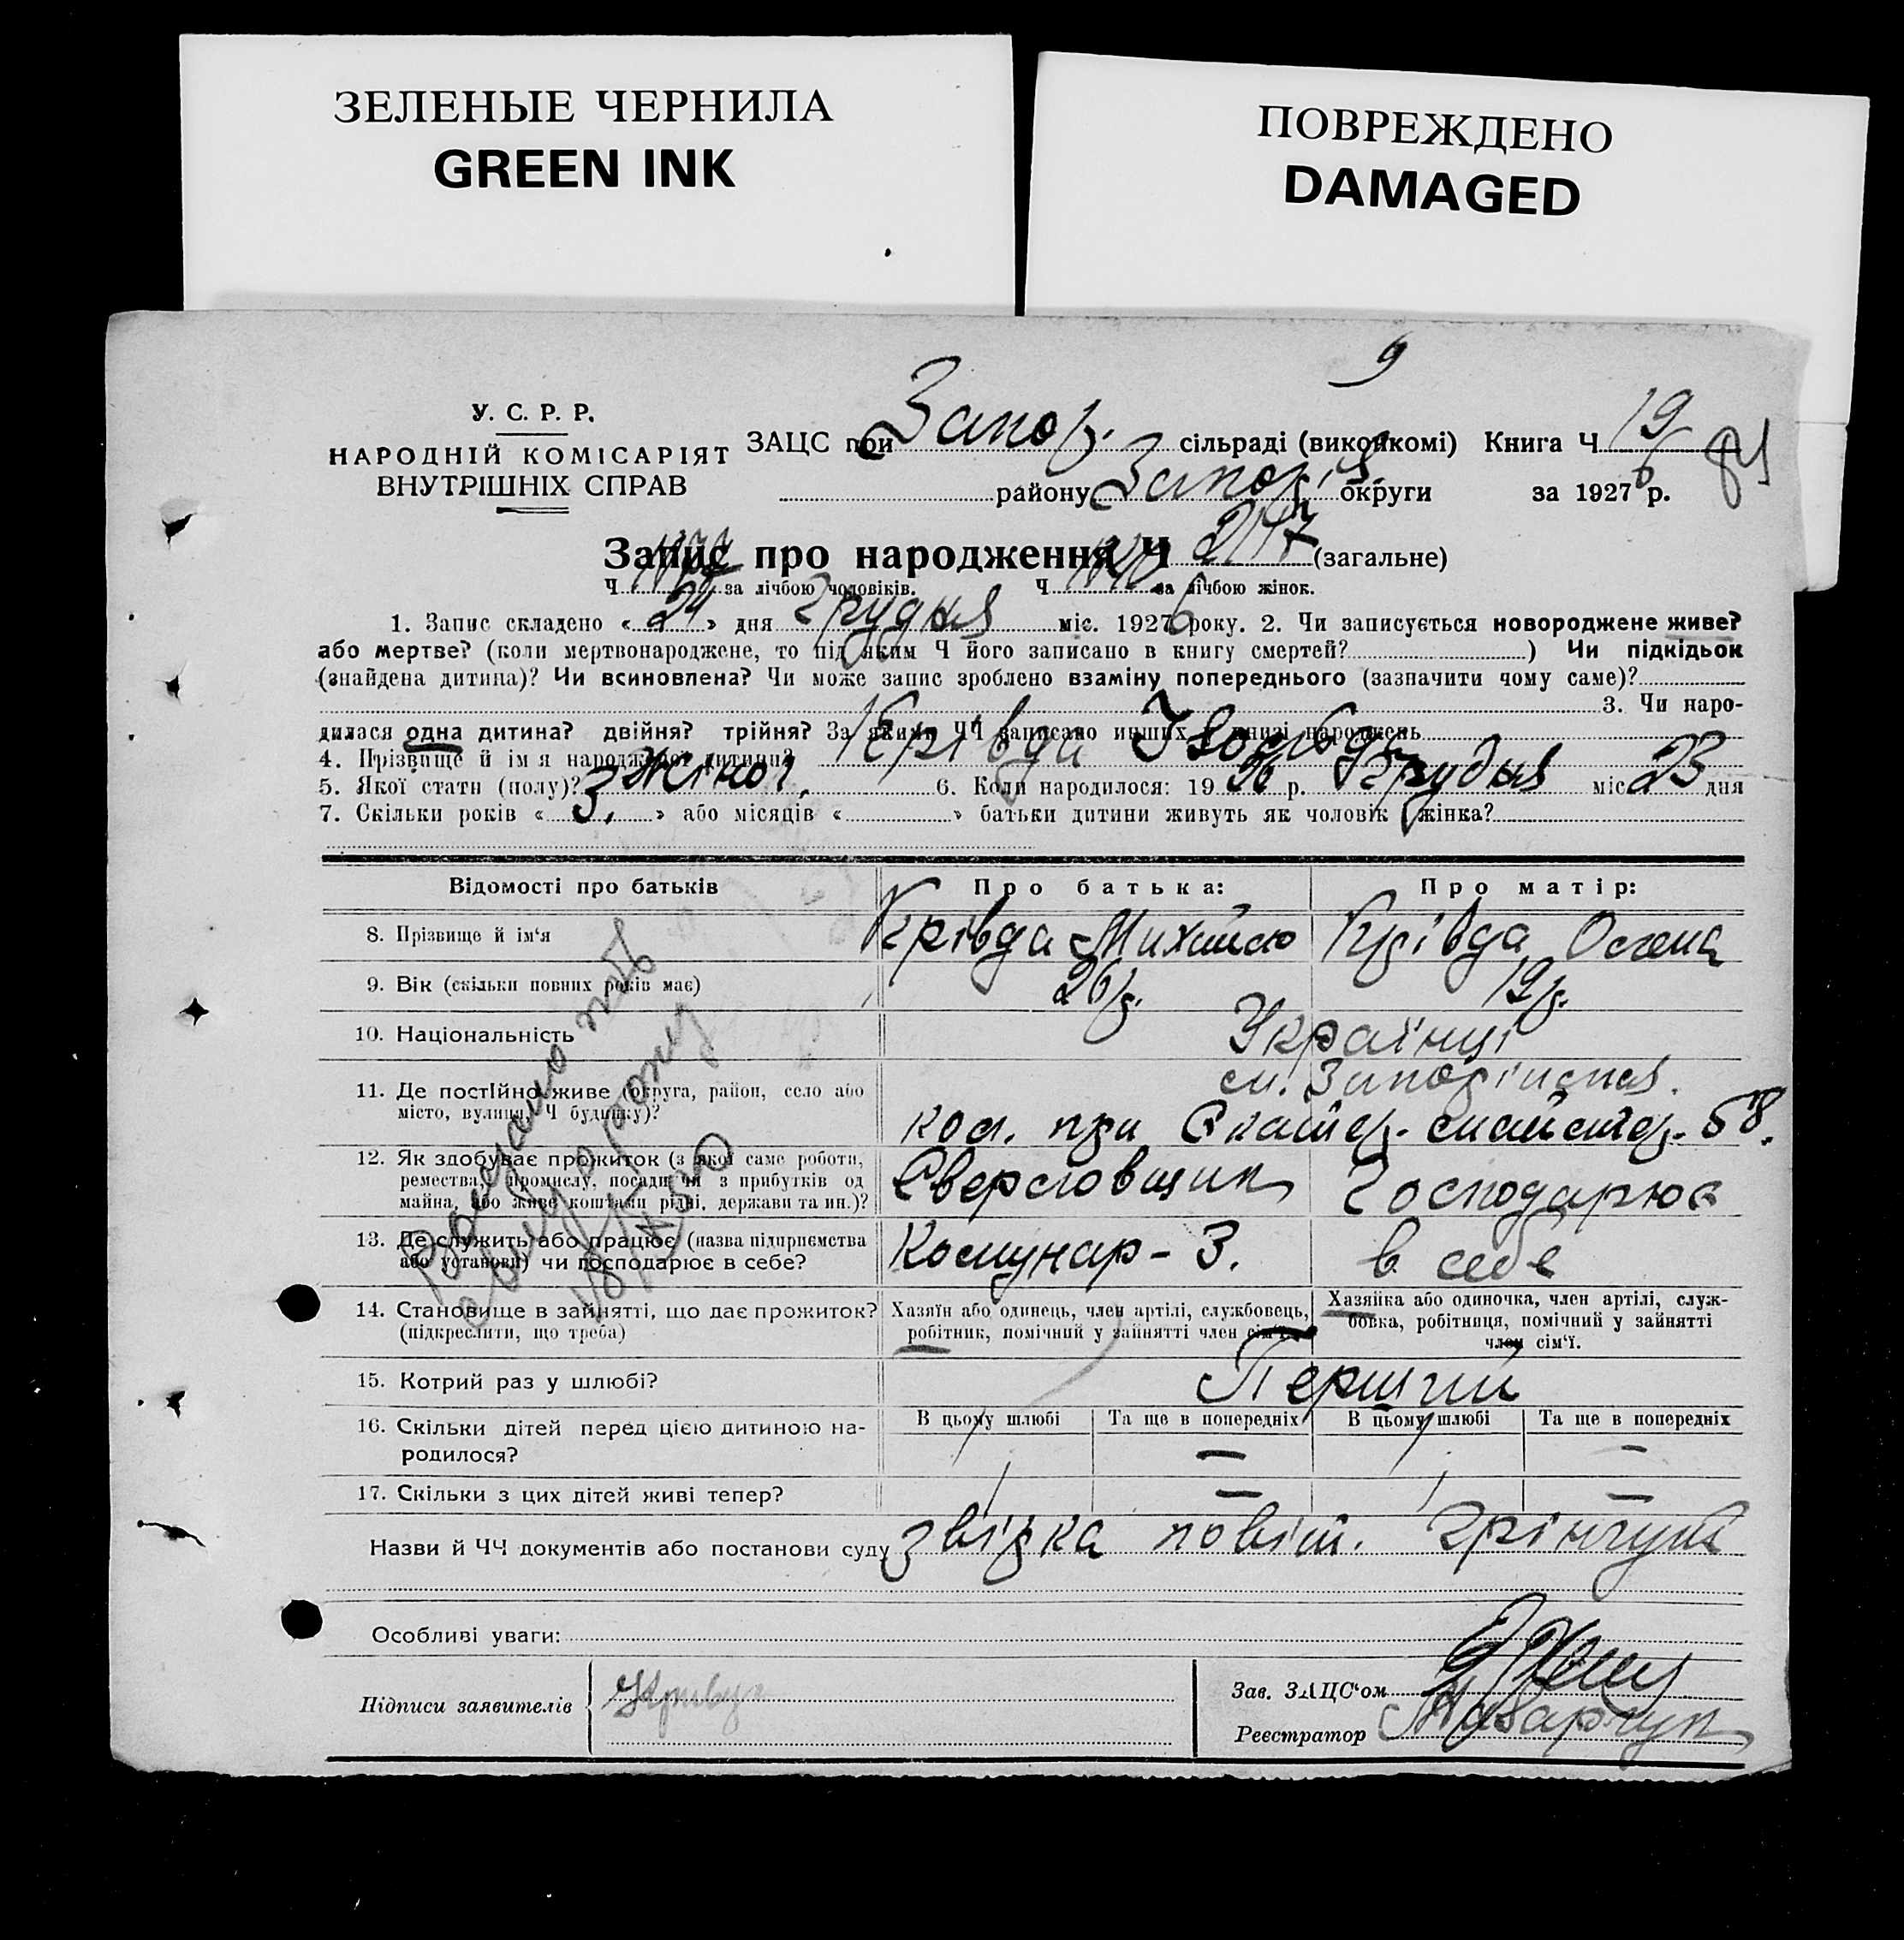 ЗЕЛЕНЫЕ ЧЕРНИЛА
GREEN INK
ПОВРЕЖДЕНО
DAMAGED
9
У. С. Р. Р.
НАРОДНІЙ КОМІСАРІЯТ
ВНУТРІШНІХ СПРАВ
ЗАЦС при Запор. сільраді (виконкомі) Книга Ч 19
району Запоріз. округи за 1927 6 р.
Запис про народження Ч 2117 (загальне)
Ч за лічбою чоловіків. Ч за лічбою жінок.
1. Запис складено « 24 » дня Грудня міс. 1927 6 року. 2. Чи записується новороджене живе?
або мертве? (коли мертвонароджене, то під яким Ч його записано в книгу смертей? ) Чи підкідьок
(знайдена дитина)? Чи всиновлена? Чи може запис зроблено взаміну попереднього (зазначити чому саме)?
3. Чи наро-
дилася одна дитина? двійня? трійня? За якими ЧЧ записано инших в книзі народжень
4. Прізвище й ім я народженої дитини? Крівда
5. Якої стати (полу)? Жіноч. 6. Коли народилося: 19 26 р. Грудня міс. 23 дня
7. Скільки років « 3. » або місяців « » батьки дитини живуть як чоловік жінка?
Відомості про батьків Про батька: Про матір:
8. Прізвище й ім‘я Крівда Михайло Крівда Олена
9. Вік (скільки повних років має) 26 р. 19 р.
10. Національність Українці
11. Де постійно живе (округа, район, село або
місто, вулиця, Ч будинку)?
м. Запоріжжя.
кол. при Екатер. 58.
12. Як здобуває прожиток (з якої саме роботи,
ремества, промислу, посади чи з прибутків од
майна, або живе коштами рідні, держави та ин.)?
Сверловщик Господарює
13. Де служить або працює (назва підприємства
або установи) чи господарює в себе?
Комунар - 3. в себе
14. Становище в зайнятті, що дає прожиток?
(підкреслити, що треба)
Хазяїн або одинець, член артілі, службовець,
робітник, помічний у зайнятті член сім‘ї.
Хазяйка або одиночка, член артілі, служ-
бовка, робітниця, помічний у зайнятті
член сім‘ї.
15. Котрий раз у шлюбі? Перший
16. Скільки дітей перед цією дитиною на-
родилося?
В цьому шлюбі Та ще в попередніх В цьому шлюбі Та ще в попередніх
1 — 1 —
17. Скільки з цих дітей живі тепер? 1 — 1 —
Назви й ЧЧ документів або постанови суду
Особливі уваги:
Підписи заявителів
Зав. ЗАЦС‘ом
Реєстратор